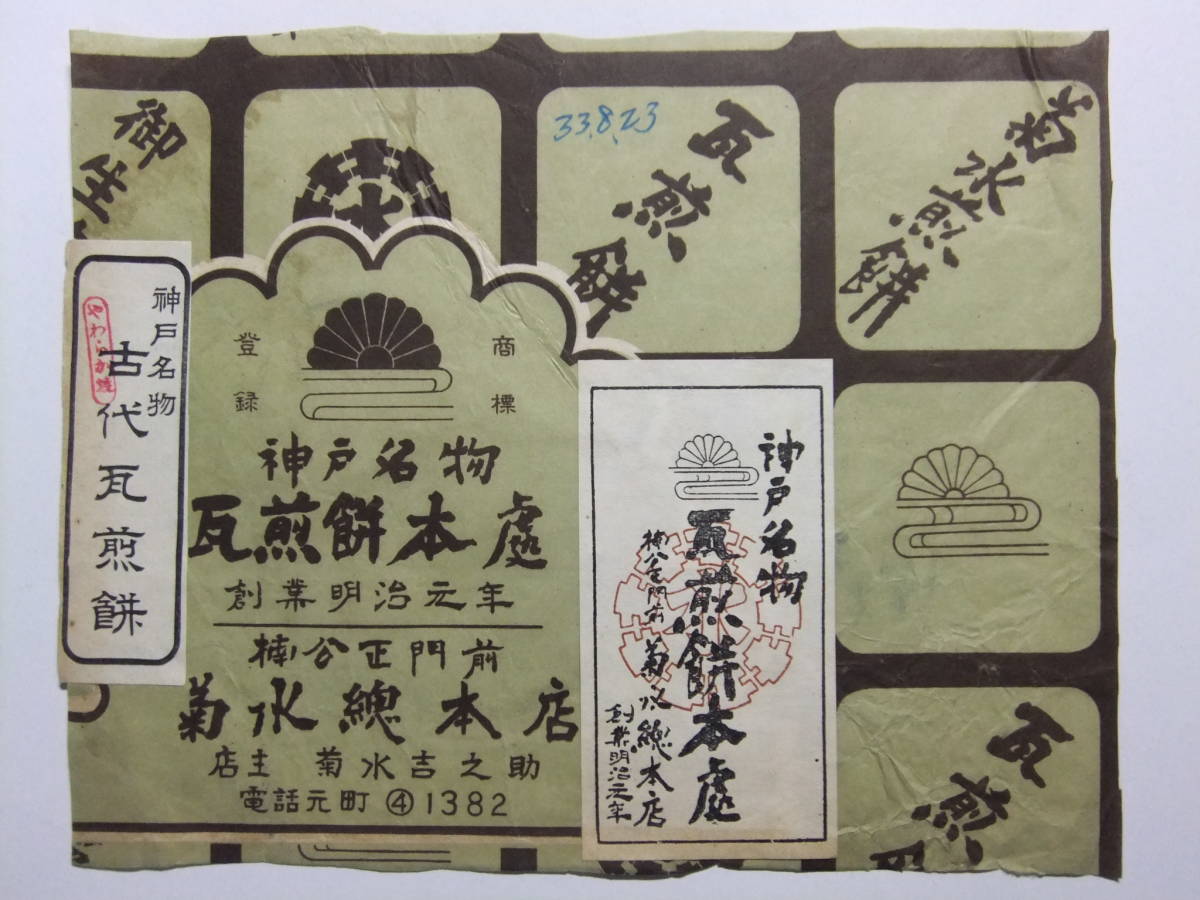 御生
33.8.23
瓦煎餅
菊水煎餅
神戸名物
やわらか焼
古代瓦煎餅
登録
商標
神戸名物
瓦煎餅本處
創業明治元年
楠公正門前
菊水總本店
店主 菊水吉之助
電話元町④1382
神戸名物
瓦煎餅本處
楠公正門前
菊水總本店
創業明治元年
瓦煎餅